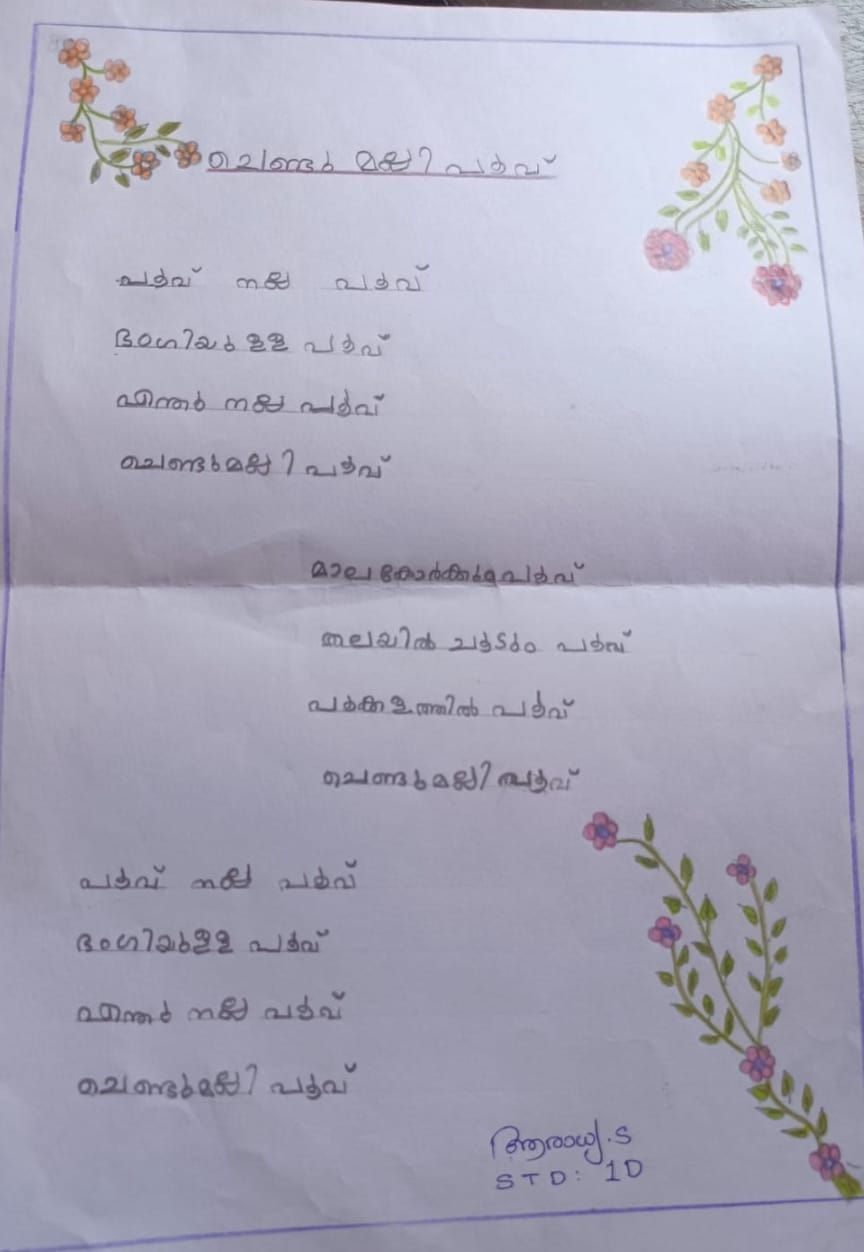 ചെണ്ടു മല്ലി പൂവ്
പൂവ് നല്ല പൂവ്
ഭംഗിയുള്ള പൂവ്
എന്തൂ നല്ല പൂവ്
ചെണ്ടുമല്ലി പൂവ്
മാല കോർക്കുംപൂവ്
തലയിൽ ചൂടും പൂവ്
പൂക്കളത്തിൽ പൂവ്
ചെണ്ടുമല്ലി പൂവ്
പൂവ് നല്ല പൂവ്
ഭംഗിയുള്ള പൂവ്
എന്തു നല്ല പൂവ്
ചെണ്ടുമല്ലി പൂവ്
ആരാധ്യ.S
STD: 1D